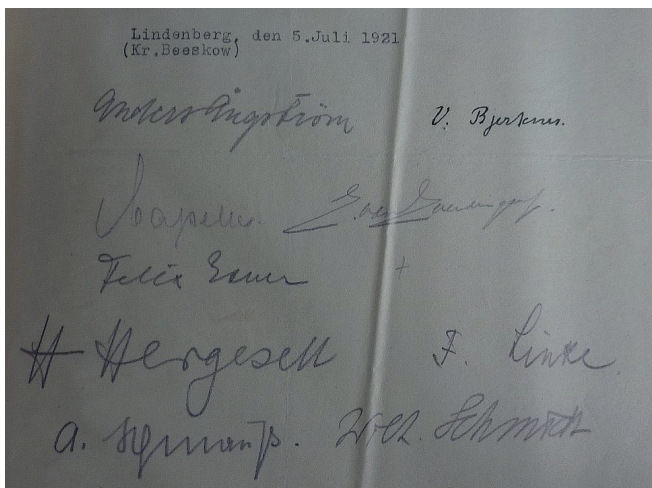 Lindenberg, den 5.Juli 1921
(Kr.Beeskow)
Anders Ångström V. Bjerknes.
Felix Exner
H Hergesell F. Linke.
A. Schmauß. Wilh. Schmidt